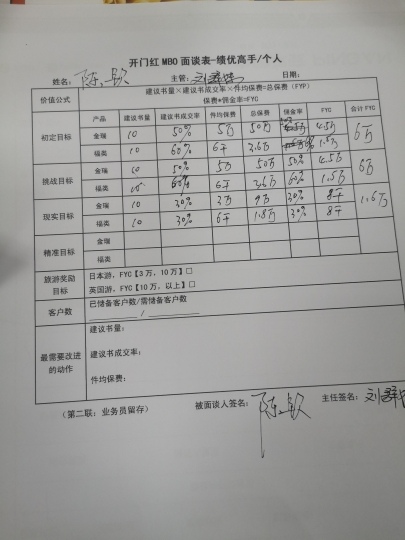 开门红 MBO 面谈表-绩优高手/个人
姓名: 陈 主管: 刘 日期:
价值公式 建议书量×建议书成交率×件均保费=总保费（FYP）
保费*佣金率=FYC
产品 建议书量 建议书成交率 件均保费 总保费 佣金率 FYC 合计 FYC
初定目标 金瑞 10 50% 5万 50万 4.5万 6万
福类 10 60% 6千 3.6万 1.5万
挑战目标 金瑞 50% 5万 50万 50% 4.5万 6万
福类 60% 6千 3.6万 60% 1.5万
现实目标 金瑞 10 30% 3万 9万 30% 8千 1.6万
福类 10 30% 6千 1.8万 30% 8千
精准目标 金瑞
福类
旅游奖励目标 日本游，FYC【3万，10万】□
英国游，FYC【10万，以上】□
客户数 已储备客户数/需储备客户数
/
最需要改进的动作 建议书量:
建议书成交率:
件均保费:
（第二联：业务员留存） 被面谈人签名: 陈 主任签名: 刘